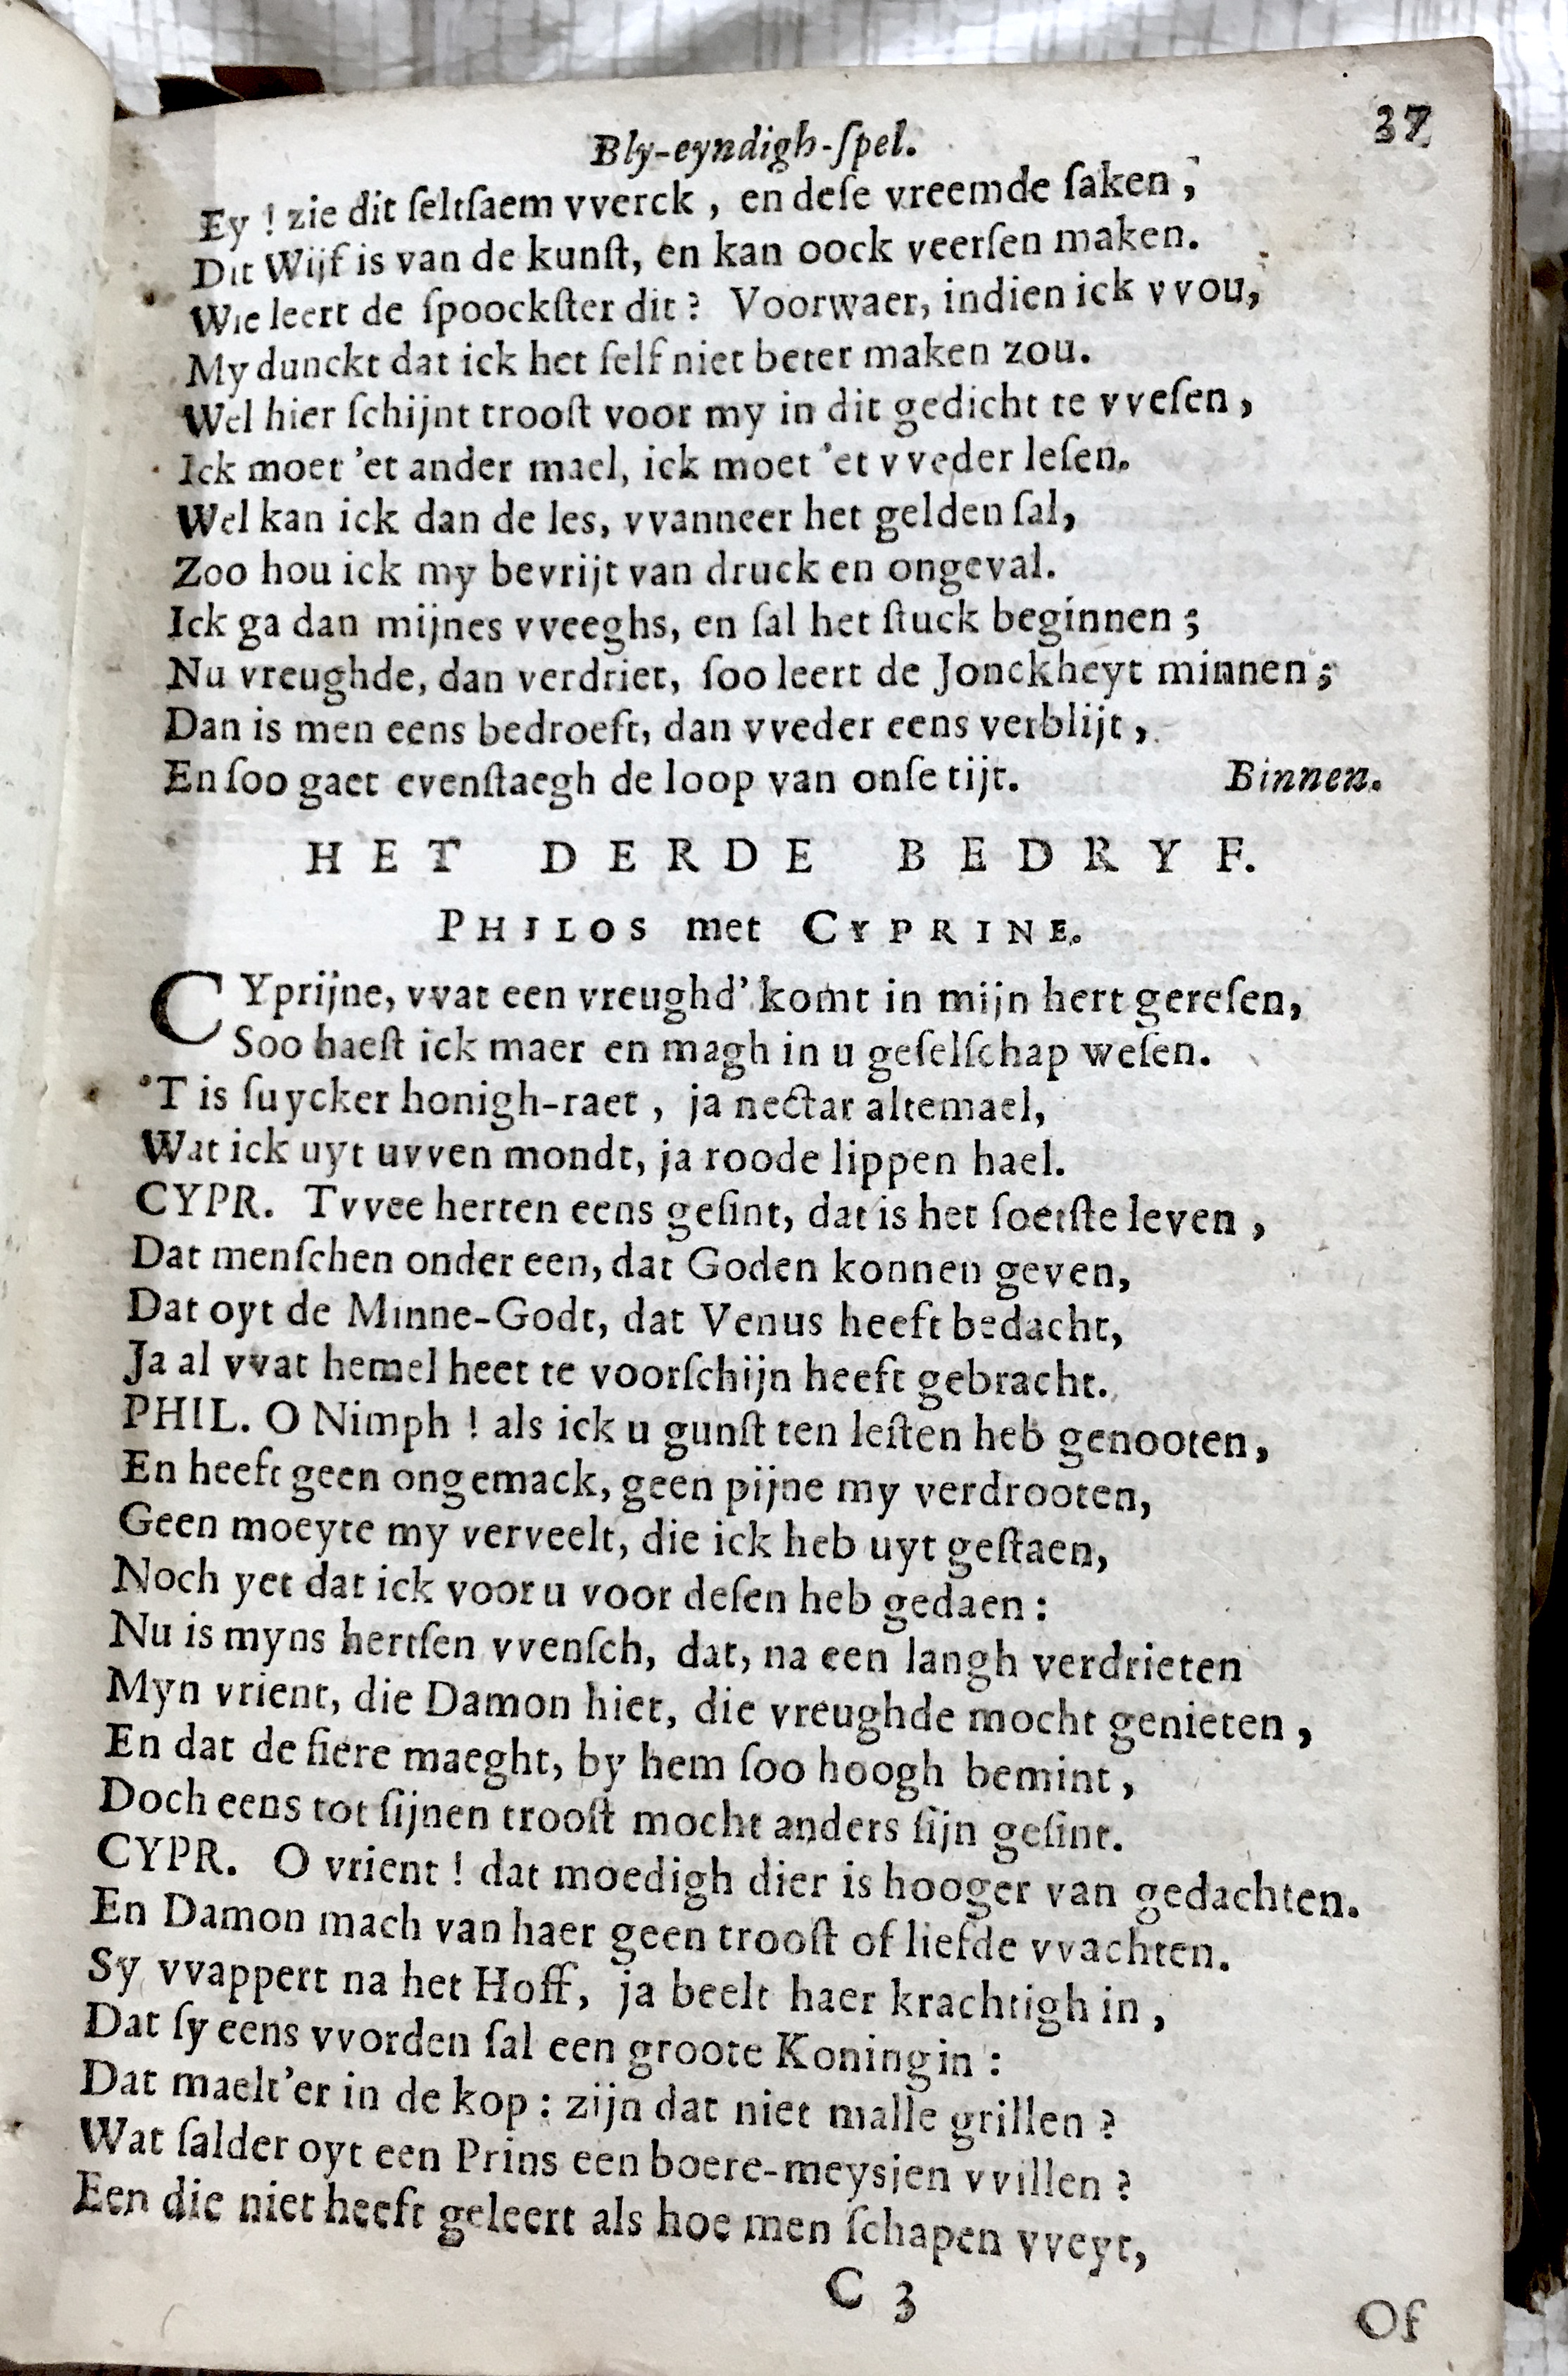 Bly-eyndigh-ſpel. 37
Ey ! zie dit ſeltſaem vverck , en deſe vreemde ſaken ,
Dit Wijf is van de kunſt, en kan oock veerſen maken.
Wie leert de ſpoockſter dit ? Voorwaer, indien ick vvou,
My dunckt dat ick het ſelf niet beter maken zou.
Wel hier ſchijnt trooſt voor my in dit gedicht te vveſen ,
Ick moet 'et ander mael, ick moet 'et vveder leſen.
Wel kan ick dan de les, vvanneer het gelden ſal,
Zoo hou ick my bevrijt van druck en ongeval.
Ick ga dan mijnes vveeghs, en ſal het ſtuck beginnen ;
Nu vreughde, dan verdriet, ſoo leert de Jonckheyt minnen ;
Dan is men eens bedroeft, dan vveder eens verblijt ,
En ſoo gaet evenſtaegh de loop van onſe tijt. Binnen.
HET DERDE BEDRYF.
PHILOS met CYPRINE.
CYprijne, vvat een vreughd' komt in mijn hert gereſen,
Soo haeſt ick maer en magh in u geſelſchap weſen.
'T is ſuycker honigh-raet , ja nectar altemael,
Wat ick uyt uvven mondt, ja roode lippen hael.
CYPR. Tvvee herten eens geſint, dat is het ſoetſte leven ,
Dat menſchen onder een, dat Goden konnen geven,
Dat oyt de Minne-Godt, dat Venus heeft bedacht,
Ja al vvat hemel heet te voorſchijn heeft gebracht.
PHIL. O Nimph ! als ick u gunſt ten leſten heb genooten,
En heeft geen ongemack, geen pijne my verdrooten,
Geen moeyte my verveelt, die ick heb uyt geſtaen,
Noch yet dat ick voor u voor deſen heb gedaen :
Nu is myns hertſen vvenſch, dat, na een langh verdrieten
Myn vrient, die Damon hiet, die vreughde mocht genieten ,
En dat de fiere maeght, by hem ſoo hoogh bemint ,
Doch eens tot ſijnen trooſt mocht anders ſijn geſint.
CYPR. O vrient ! dat moedigh dier is hooger van gedachten.
En Damon mach van haer geen trooſt of liefde vvachten.
Sy vvappert na het Hoff, ja beelt haer krachtigh in ,
Dat ſy eens vvorden ſal een groote Koningin :
Dat maelt'er in de kop : zijn dat niet malle grillen ?
Wat ſalder oyt een Prins een boere-meysjen vvillen ?
Een die niet heeft geleert als hoe men ſchapen vveyt,
C 3
Of